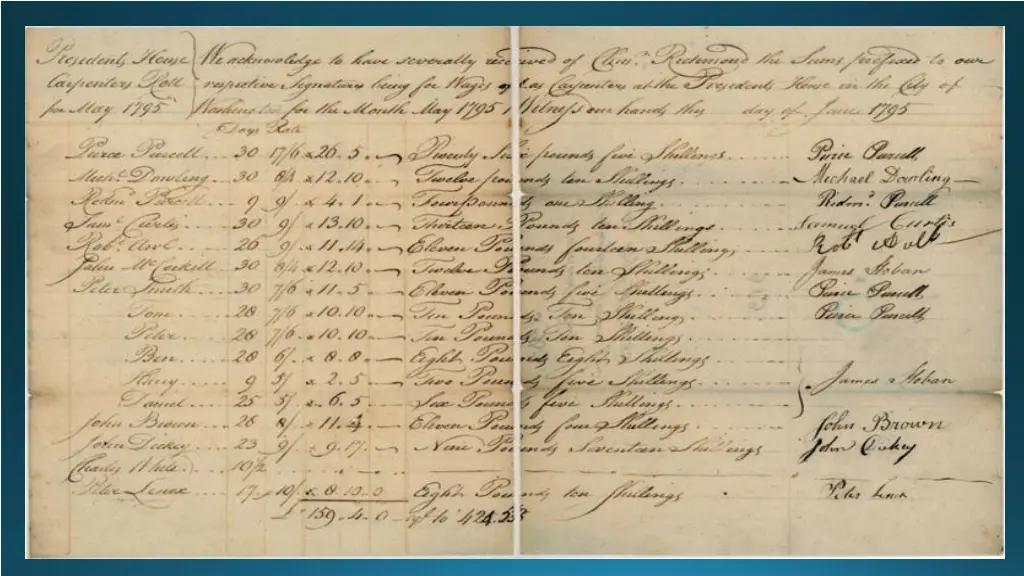 Presidents House We acknowledge to have severally received of Chrisr. Richmond the Sums prefixed to our
Carpenters Roll respective Signatures being for Wages as Carpenters at the Presidents House in the City of
for May 1795 Washington for the Month May 1795 Witness our hands this day of June 1795
Days Rate
Pierce Purcell 30 17/6 x 26.5 Twenty Six pounds five Shillings Pierce Purcell
Michl. Dowling 30 8/4 x 12.10 Twelve pounds ten Shillings Michael Dowling
Redmd. Purcell 9 9/ x 4.1 Four pounds one Shilling Redmd. Purcell
Saml. Curtis 30 9/ x 13.10 Thirteen Pounds ten Shillings Samuel Curtis
Robt. Aull 26 9/ x 11.14 Eleven Pounds fourteen Shillings Robt Aull
John McCorkill 30 8/4 x 12.10 Twelve Pounds ten Shillings James Hoban
Peter Smith 30 7/6 x 11.5 Eleven Pounds five Shillings Pierce Purcell
Tom 28 7/6 x 10.10 Ten Pounds Ten Shillings Pierce Purcell
Peter 28 7/6 x 10.10 Ten Pounds Ten Shillings
Ben 28 6/ x 8.8 Eight Pounds Eight Shillings
Harry 9 5/ x 2.5 Two Pounds five Shillings James Hoban
Daniel 25 5/ x 6.5 Six Pounds five Shillings
John Brown 28 8/ x 11.4 Eleven Pounds four Shillings John Brown
John Dickey 23 9/ x 9.17 Nine Pounds Seventeen Shillings John Dickey
Charles White 10/2
Peter Lenox 17 10/ x 8.10.0 Eight Pounds ten Shillings Peter Lenox
£ 159.4.0 to 424.53